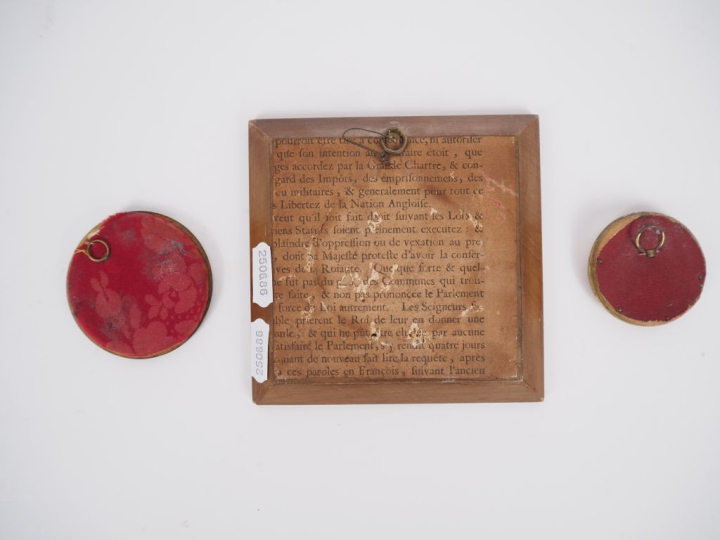 pourroit être tiré à conséquence, ni autoriser
que son intention au contraire étoit, que
ges accordez par la Grande Chartre, & con-
gard des Impôts, des emprisonnemens, des
ou militaires, & généralement pour tout ce
s Libertez de la Nation Angloise.
veut qu'il soit fait droit suivant les Lois &
iens Statuts soient pleinement executez: &
plaindre d'oppression ou de vexation au pre
dont sa Majesté proteste d'avoir la conser-
ves de Royauté. Quelque forte & quel-
e fût pas du des Communes qui trou-
te faite, & non pas prononcée le Parlement
force de Loi autrement. Les Seigneurs &
ble prierent le Roi de leur en donner une
aule, & qui ne pût être par aucune
atisfaire le Parlement, rendit quatre jours
aiant de nouveau fait lire la requête, après
a ces paroles en François, suivant l'ancien
250686
250686